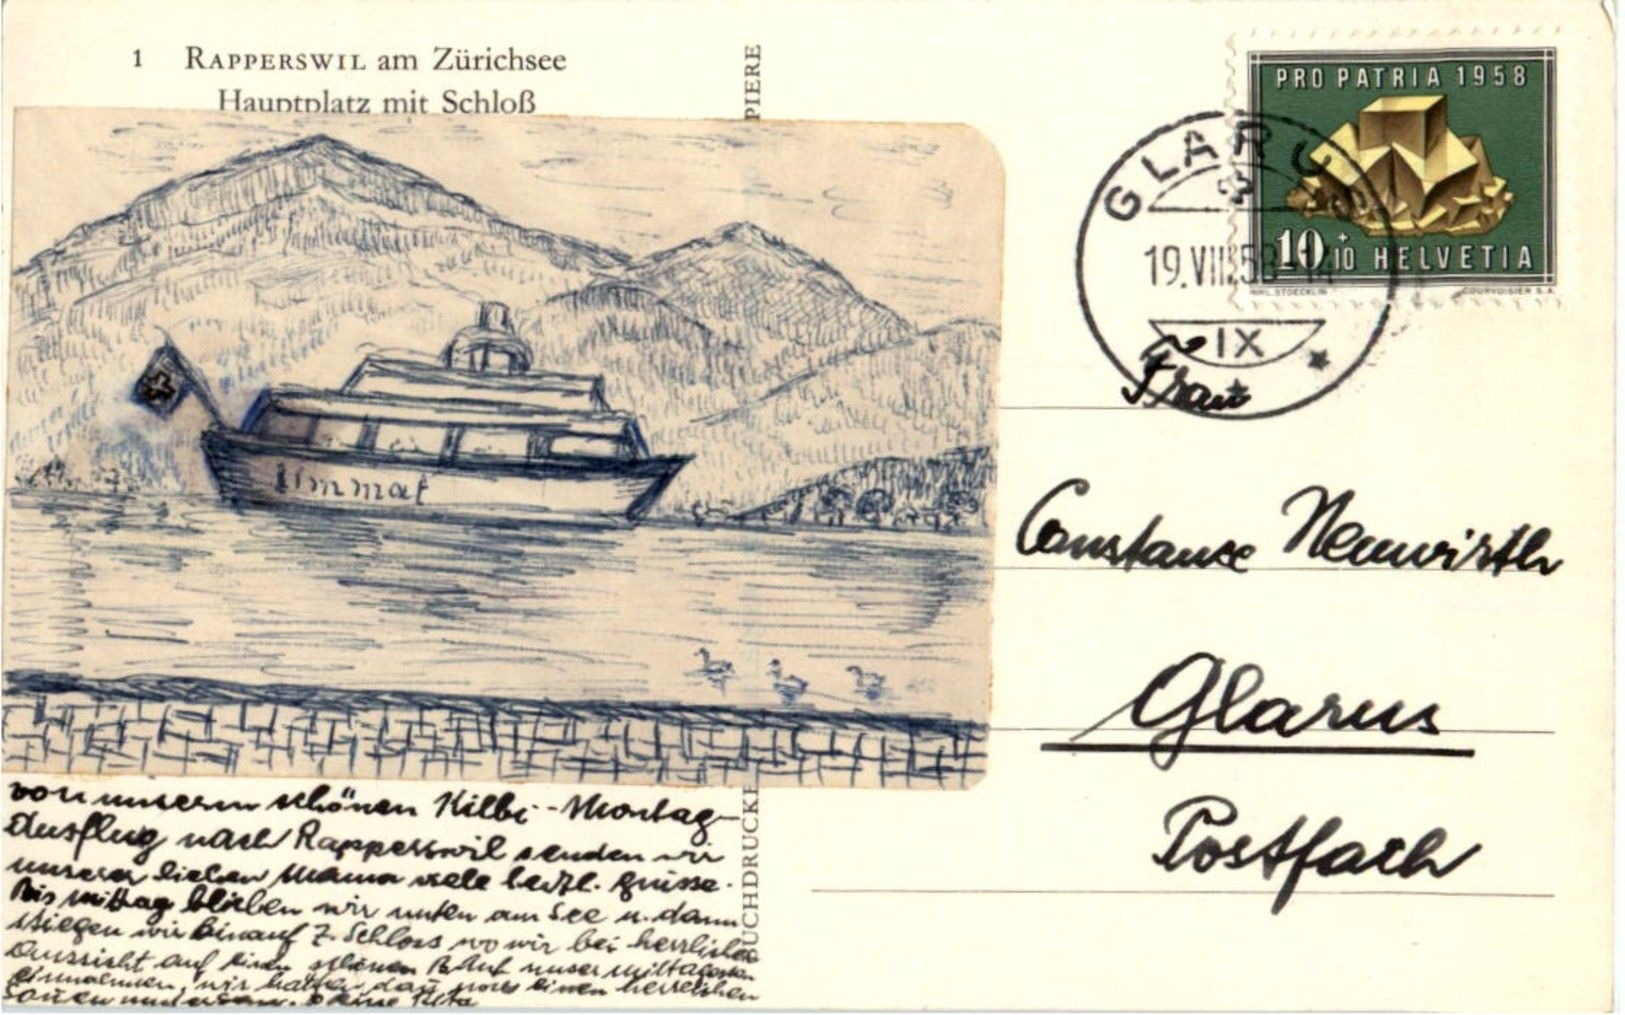 1 RAPPERSWIL am Zürichsee
Hauptplatz mit Schloß
PIERE
BUCHDRUCKE
PRO PATRIA 1958
10+10 HELVETIA
NIKL. STOECKLIN COURVOISIER S.A.
GLARUS
19.VIII.58
IX
Limmat
Frau
Constanze Neuwirth
Glarus
Postfach
von unserm schönen Kilbi-Montag-
Ausflug nach Rapperswil senden wir
unserer lieben Mama viele herzl. Grüsse.
Bis Mittag blieben wir unten am See u. dann
stiegen wir hinauf z. Schloss wo wir bei herrlicher
Aussicht auf einen schönen unser Mittagessen
einnahmen, wir hatten dazu einen herrlichen